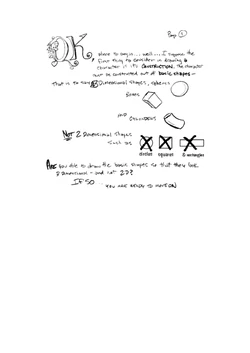 Page 1
OK
Where to begin... well... I suppose the
first thing to consider in drawing a
character is it's construction. The character
must be constructed out of basic shapes—
that is to say 3 Dimensional shapes, spheres
Boxes
and
Cylinders
Not 2 Dimensional shapes
such as
circles squares & rectangles
Are you able to draw the basic shapes so that they look
3 Dimensional - and not 2D?
IF SO
You are ready to move on